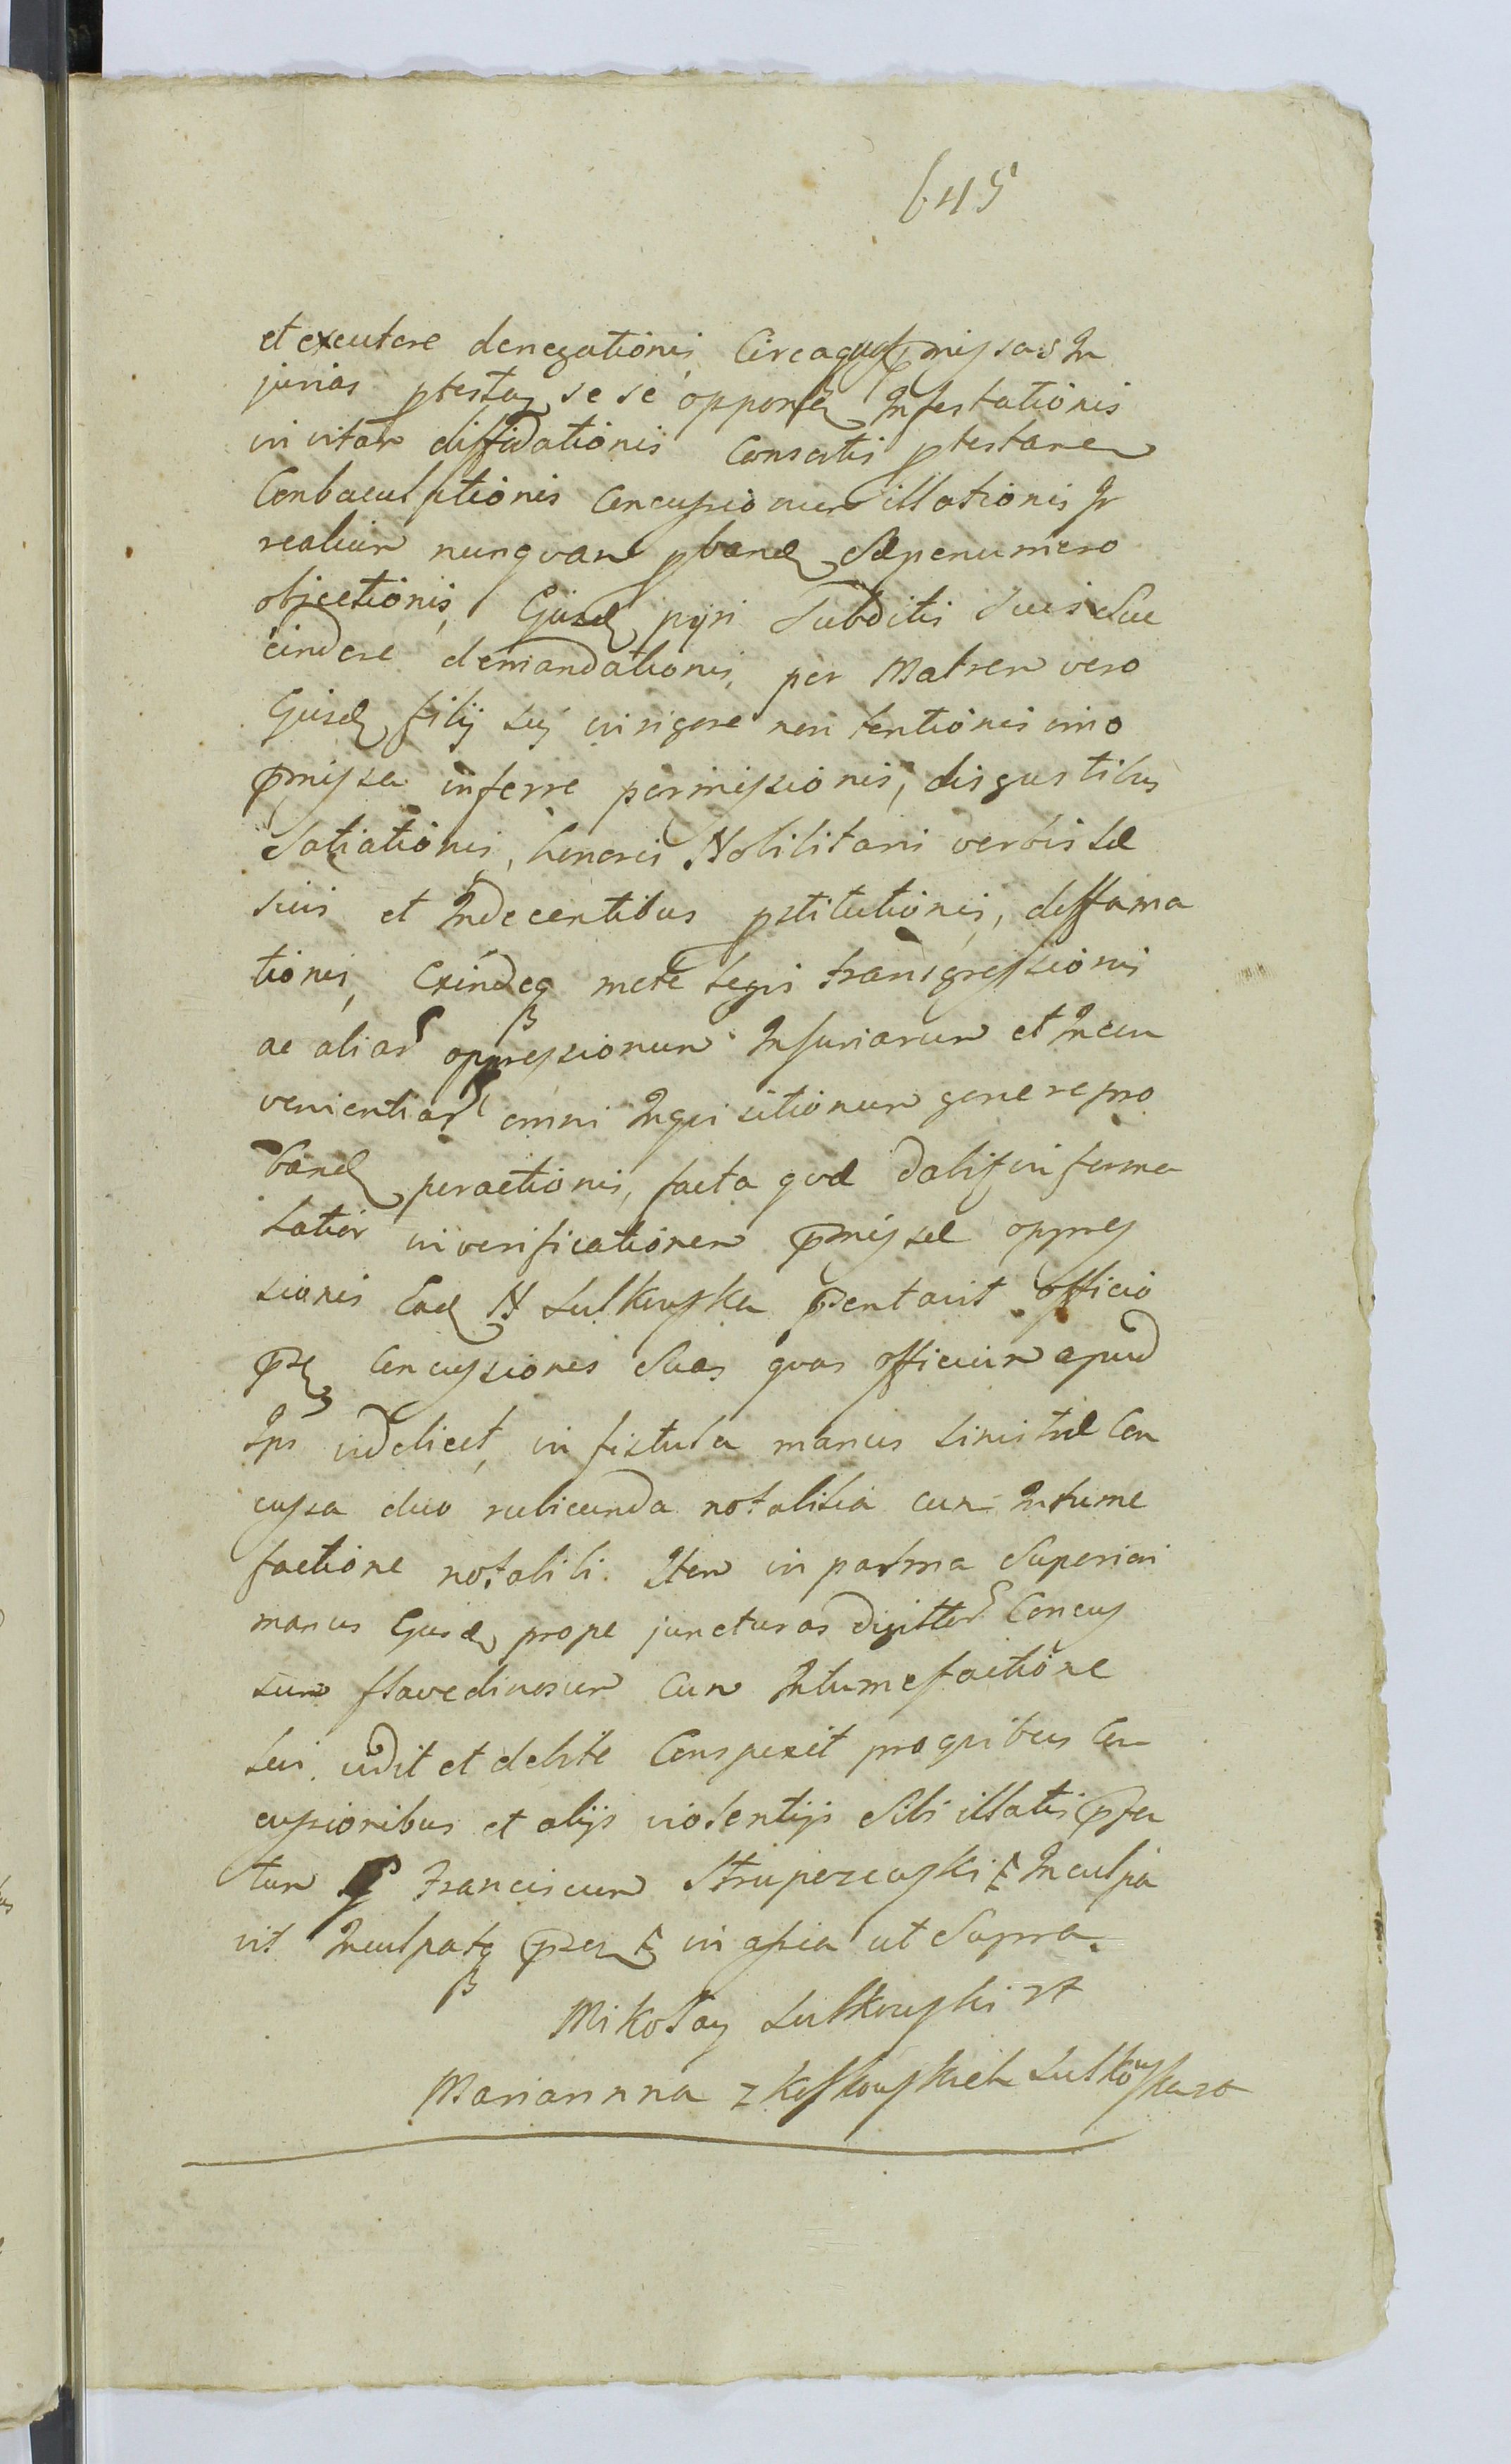 645
et excutere denegationis, Circaque pmissas In
jurias ptestan se se opponen Infestationis
in vitam diffidationis Consertis ptestanem
Conbaculationis Concussionum illationis Ir
realium nunquam pband Sæpenumero
objectionis, Ejusd ppri Subditis Suis Suc
cindere demandationis, per Matrem vero
Ejusd filij sui in rigore non tentionis imo
pmissa inferre permissionis, disgustibus
Satiationis, honoris Nobilitarii verbis læ
sivis et Indecentibus pstitutionis, diffama
tionis, Exindeq metæ Legis transgressionis
ac aliar oppressionum Injuriarum et Incon
venientiar omni Inquisitionum genere pro
band peractionis, facta quæ Dabit informa
latior in verificationem pmissæ oppres
sionis Ead N Sulkowska psentavit officio
pse Concussiones Suas quas officium apud
Ips videlicet, in fistula manus sinistræ Con
cussa duo rubicunda notabilia cum Intume
factione notabili. Item in palma Superiori
manus Ejusd prope juncturas digittor Concus
sum flavedinosum Cum Intumefactione
sui, vidit et debite Conspexit pro quibus Con
cussionibus et alijs violentijs Sibi illatis pfa
tum G Franciscum Strupczewski Inculpa
vit Inculpatq psen in assia ut Supra.
Mikołay Sulkowski
Mariannna z Koskowskich Sulkowska